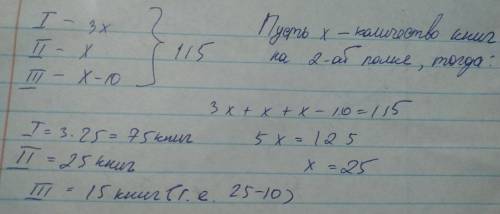 I - 3x
II - x
III - x-10
115
Пусть x - количество книг
на 2-ой полке, тогда:
3x + x + x - 10 = 115
5x = 125
x = 25
I = 3·25 = 75 книг
II = 25 книг
III = 15 книг (т.е. 25-10)